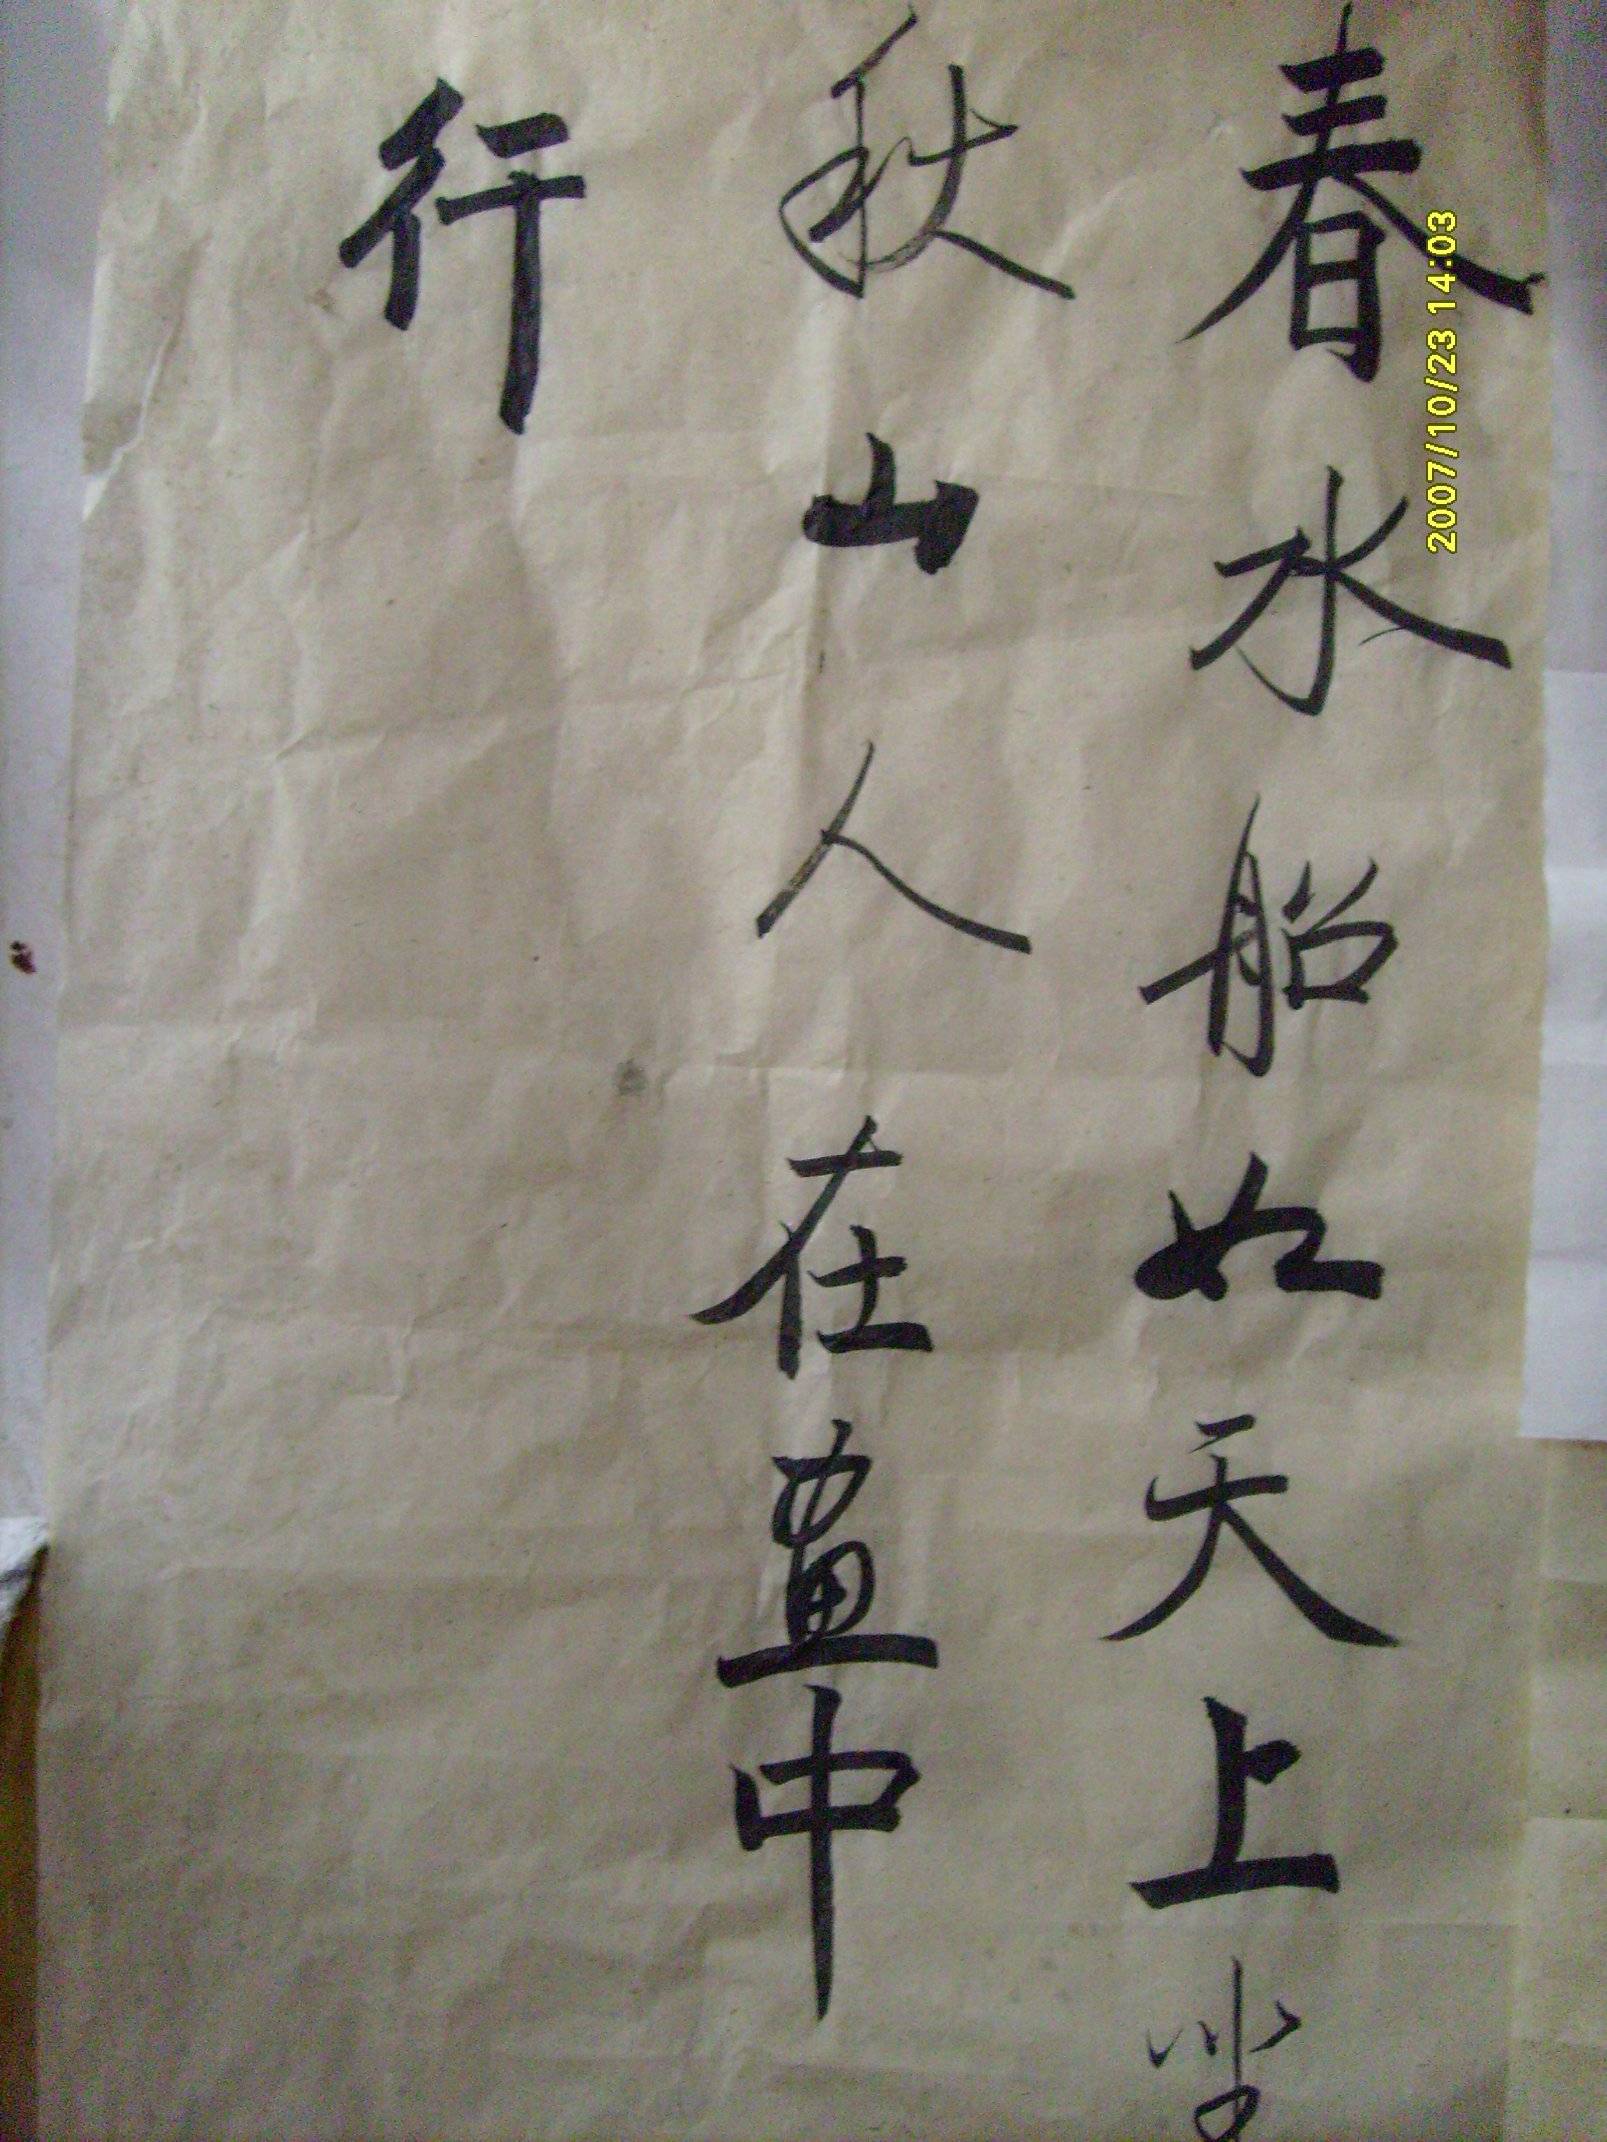 春水船如天上坐
秋山人在画中
行
2007/10/23 14:03